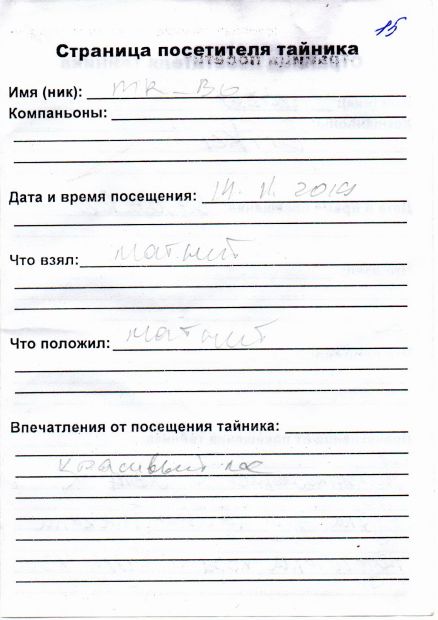 15
Страница посетителя тайника
Имя (ник): mk-
Компаньоны:
Дата и время посещения: 14.11.2019
Что взял: магнит
Что положил: магнит
Впечатления от посещения тайника:
красивый